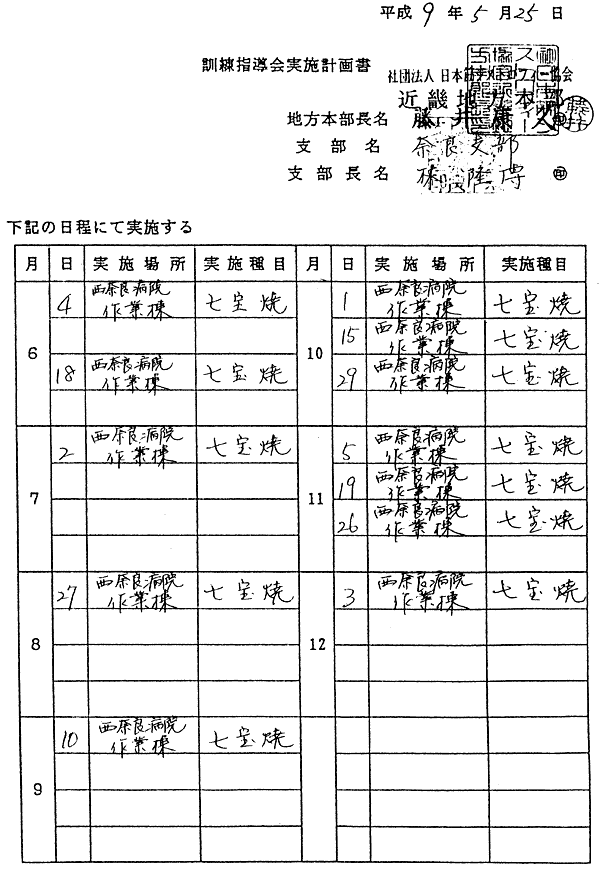 平成 9 年 5 月 25 日
訓練指導会実施計画書
社団法人 日本筋ジストロフィー協会
近畿地方本部
地方本部長名 藤井康久
支部名 奈良支部
支部長名 ㊞
下記の日程にて実施する
月 日 実施場所 実施種目 月 日 実施場所 実施種目
6 4 西奈良病院 作業棟 七宝焼
18 西奈良病院 作業棟 七宝焼
7 2 西奈良病院 作業棟 七宝焼
8 27 西奈良病院 作業棟 七宝焼
9 10 西奈良病院 作業棟 七宝焼
10 1 西奈良病院 作業棟 七宝焼
15 西奈良病院 作業棟 七宝焼
29 西奈良病院 作業棟 七宝焼
11 5 西奈良病院 作業棟 七宝焼
19 西奈良病院 作業棟 七宝焼
26 西奈良病院 作業棟 七宝焼
12 3 西奈良病院 作業棟 七宝焼